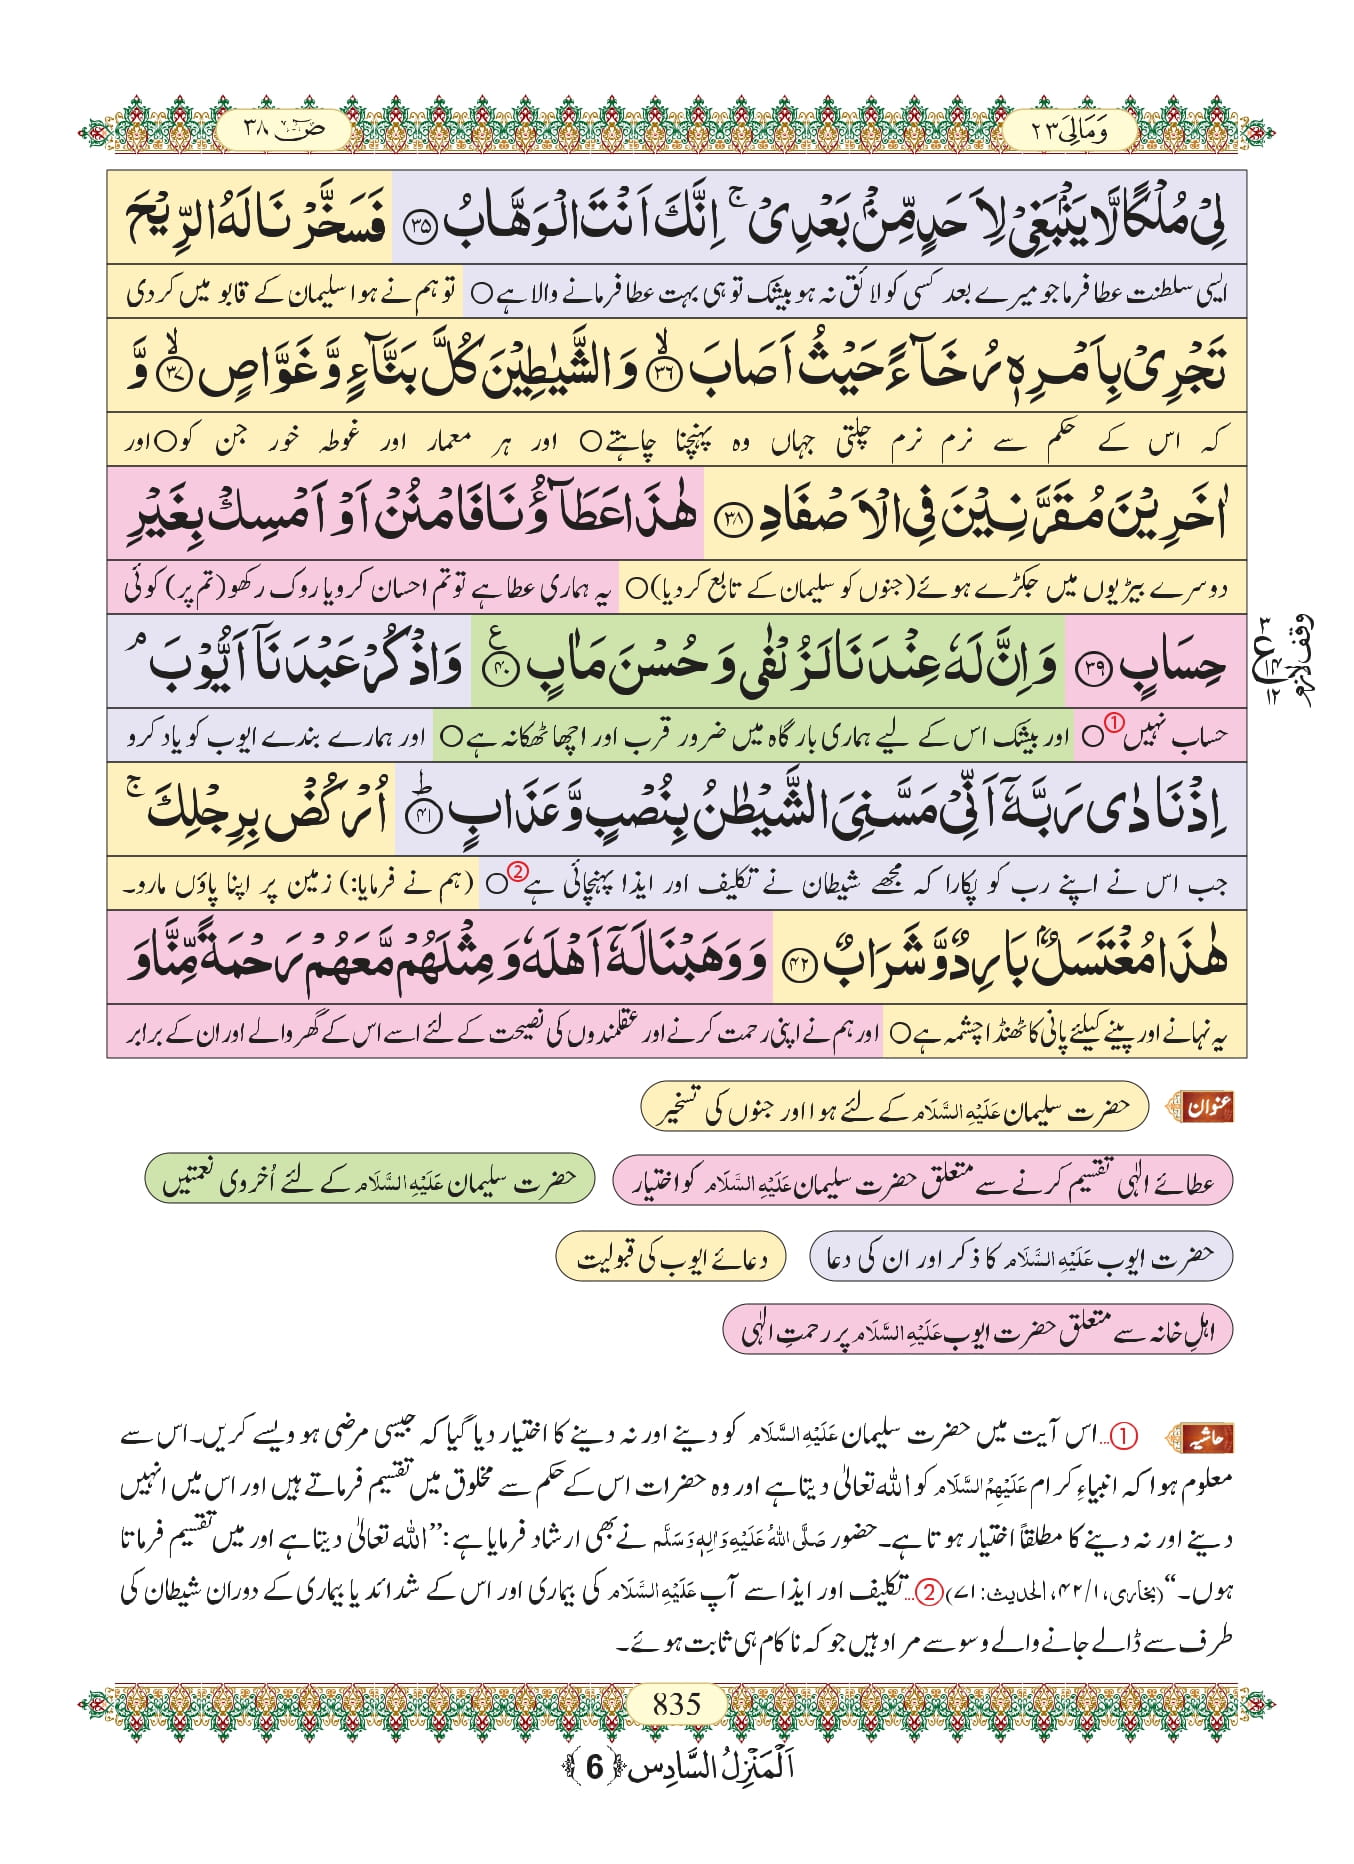 وَمَالِیَ ۲۳
صٓ ۳۸
لِیْ مُلْكًا لَّا یَنْۢبَغِیْ لِاَحَدٍ مِّنْۢ بَعْدِیْ ۚ اِنَّكَ اَنْتَ الْوَهَّابُ ﴿۳۵﴾ فَسَخَّرْنَا لَهُ الرِّیْحَ
ایسی سلطنت عطا فرما جو میرے بعد کسی کو لائق نہ ہو بیشک تو ہی بہت عطا فرمانے والا ہے ○ تو ہم نے ہوا سلیمان کے قابو میں کردی
تَجْرِیْ بِاَمْرِهٖ رُخَآءً حَیْثُ اَصَابَ ﴿ۙ۳۶﴾ وَ الشَّیٰطِیْنَ كُلَّ بَنَّآءٍ وَّ غَوَّاصٍ ﴿ۙ۳۷﴾ وَّ
کہ اس کے حکم سے نرم نرم چلتی جہاں وہ پہنچنا چاہتے ○ اور ہر معمار اور غوطہ خور جن کو ○ اور
اٰخَرِیْنَ مُقَرَّنِیْنَ فِی الْاَصْفَادِ ﴿۳۸﴾ هٰذَا عَطَآؤُنَا فَامْنُنْ اَوْ اَمْسِكْ بِغَیْرِ
دوسرے بیڑیوں میں جکڑے ہوئے (جنوں کو سلیمان کے تابع کردیا) ○ یہ ہماری عطا ہے تو تم احسان کرو یا روک رکھو (تم پر) کوئی
حِسَابٍ ﴿۳۹﴾ وَ اِنَّ لَهٗ عِنْدَنَا لَزُلْفٰی وَ حُسْنَ مَاٰبٍ ﴿۴۰﴾ ع وَ اذْكُرْ عَبْدَنَاۤ اَیُّوْبَ ۘ
۳ ع ۱۴ ۱۲ وقف لازم
حساب نہیں ① ○ اور بیشک اس کے لیے ہماری بارگاہ میں ضرور قرب اور اچھا ٹھکانہ ہے ○ اور ہمارے بندے ایوب کو یاد کرو
اِذْ نَادٰی رَبَّهٗۤ اَنِّیْ مَسَّنِیَ الشَّیْطٰنُ بِنُصْبٍ وَّ عَذَابٍ ﴿ؕ۴۱﴾ اُرْكُضْ بِرِجْلِكَ ۚ
جب اس نے اپنے رب کو پکارا کہ مجھے شیطان نے تکلیف اور ایذا پہنچائی ہے ② ○ (ہم نے فرمایا:) زمین پر اپنا پاؤں مارو۔
هٰذَا مُغْتَسَلٌۢ بَارِدٌ وَّ شَرَابٌ ﴿۴۲﴾ وَ وَهَبْنَا لَهٗۤ اَهْلَهٗ وَ مِثْلَهُمْ مَّعَهُمْ رَحْمَةً مِّنَّا وَ
یہ نہانے اور پینے کیلئے پانی کا ٹھنڈا چشمہ ہے ○ اور ہم نے اپنی رحمت کرنے اور عقلمندوں کی نصیحت کے لئے اسے اس کے گھر والے اور ان کے برابر
عنوان حضرت سلیمان عَلَیْهِ السَّلَام کے لئے ہوا اور جنوں کی تسخیر
عطائے الٰہی تقسیم کرنے سے متعلق حضرت سلیمان عَلَیْهِ السَّلَام کو اختیار
حضرت سلیمان عَلَیْهِ السَّلَام کے لئے اُخروی نعمتیں
حضرت ایوب عَلَیْهِ السَّلَام کا ذکر اور ان کی دعا
دعائے ایوب کی قبولیت
اہلِ خانہ سے متعلق حضرت ایوب عَلَیْهِ السَّلَام پر رحمتِ الٰہی
حاشیہ ①... اس آیت میں حضرت سلیمان عَلَیْهِ السَّلَام کو دینے اور نہ دینے کا اختیار دیا گیا کہ جیسی مرضی ہو ویسے کریں۔ اس سے
معلوم ہوا کہ انبیاءِ کرام عَلَیْهِمُ السَّلَام کو اللہ تعالیٰ دیتا ہے اور وہ حضرات اس کے حکم سے مخلوق میں تقسیم فرماتے ہیں اور اس میں انہیں
دینے اور نہ دینے کا مطلقاً اختیار ہوتا ہے۔ حضور صَلَّی اللهُ عَلَیْهِ وَاٰلِهٖ وَسَلَّم نے بھی ارشاد فرمایا ہے: ’’اللہ تعالیٰ دیتا ہے اور میں تقسیم فرماتا
ہوں۔‘‘ (بخاری، ۱/۴۲، الحدیث: ۷۱) ②... تکلیف اور ایذا سے آپ عَلَیْهِ السَّلَام کی بیماری اور اس کے شدائد یا بیماری کے دوران شیطان کی
طرف سے ڈالے جانے والے وسوسے مراد ہیں جو کہ ناکام ہی ثابت ہوئے۔
835
اَلْمَنْزِلُ السَّادِس ﴿6﴾